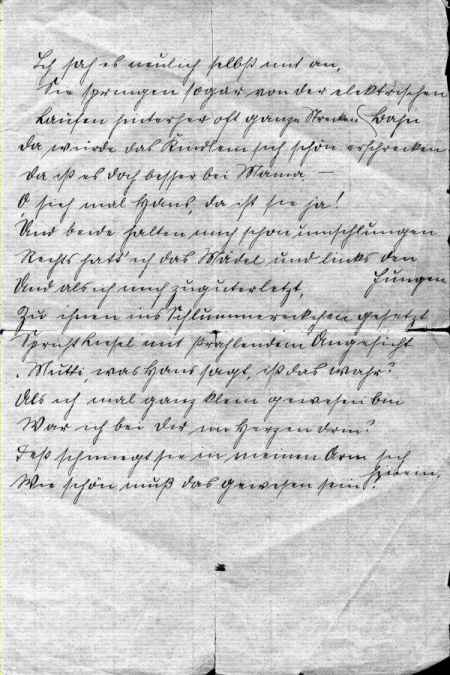 Ich sah es neulich selbst mit an,
Sie springen sogar von der elektrischen
Laufen hinterher oft ganze Strecken Bahn
da würde das Kindlein sich schön erschrecken
da ist es doch besser bei Mama —
O sieh mal Hans, da ist sie ja!
Und beide halten mich schon umschlungen
Rechts hatt' ich das Mädel und links den
Jungen
Und als ich mich zuguterletzt,
Zu ihnen ins Schlummereckchen gesetzt
Spricht Liesel mit strahlendem Angesicht
„Mutti, was Hans sagt, ist das wahr?
Als ich mal ganz klein gewesen bin
War ich bei dir im Herzen drin?
Fest schmiegt sie in meinen Arm sich
hinein,
Wie schön muß das gewesen sein!